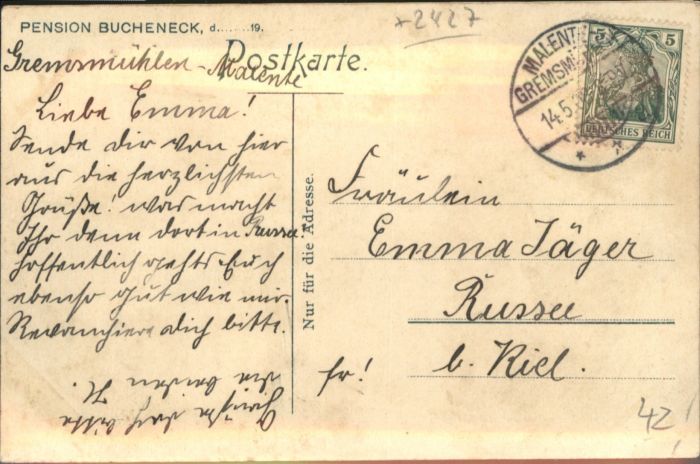 PENSION BUCHENECK, d........19.
+2427
Postkarte.
Gremsmühlen-Malente
Liebe Emma!
Sende dir von hier
aus die herzlichsten
Grüße! was macht
Ihr denn dort in Russee!
hoffentlich gehts Euch
ebenso gut wie mir.
Revanchiere dich bitte.
Grüße doch bitte
die beiden
MALENTE
GREMSM
14.5.
5 5
DEUTSCHES REICH
Nur für die Adresse.
Fräulein
Emma Jäger
Russee
b. Kiel.
fr!
42